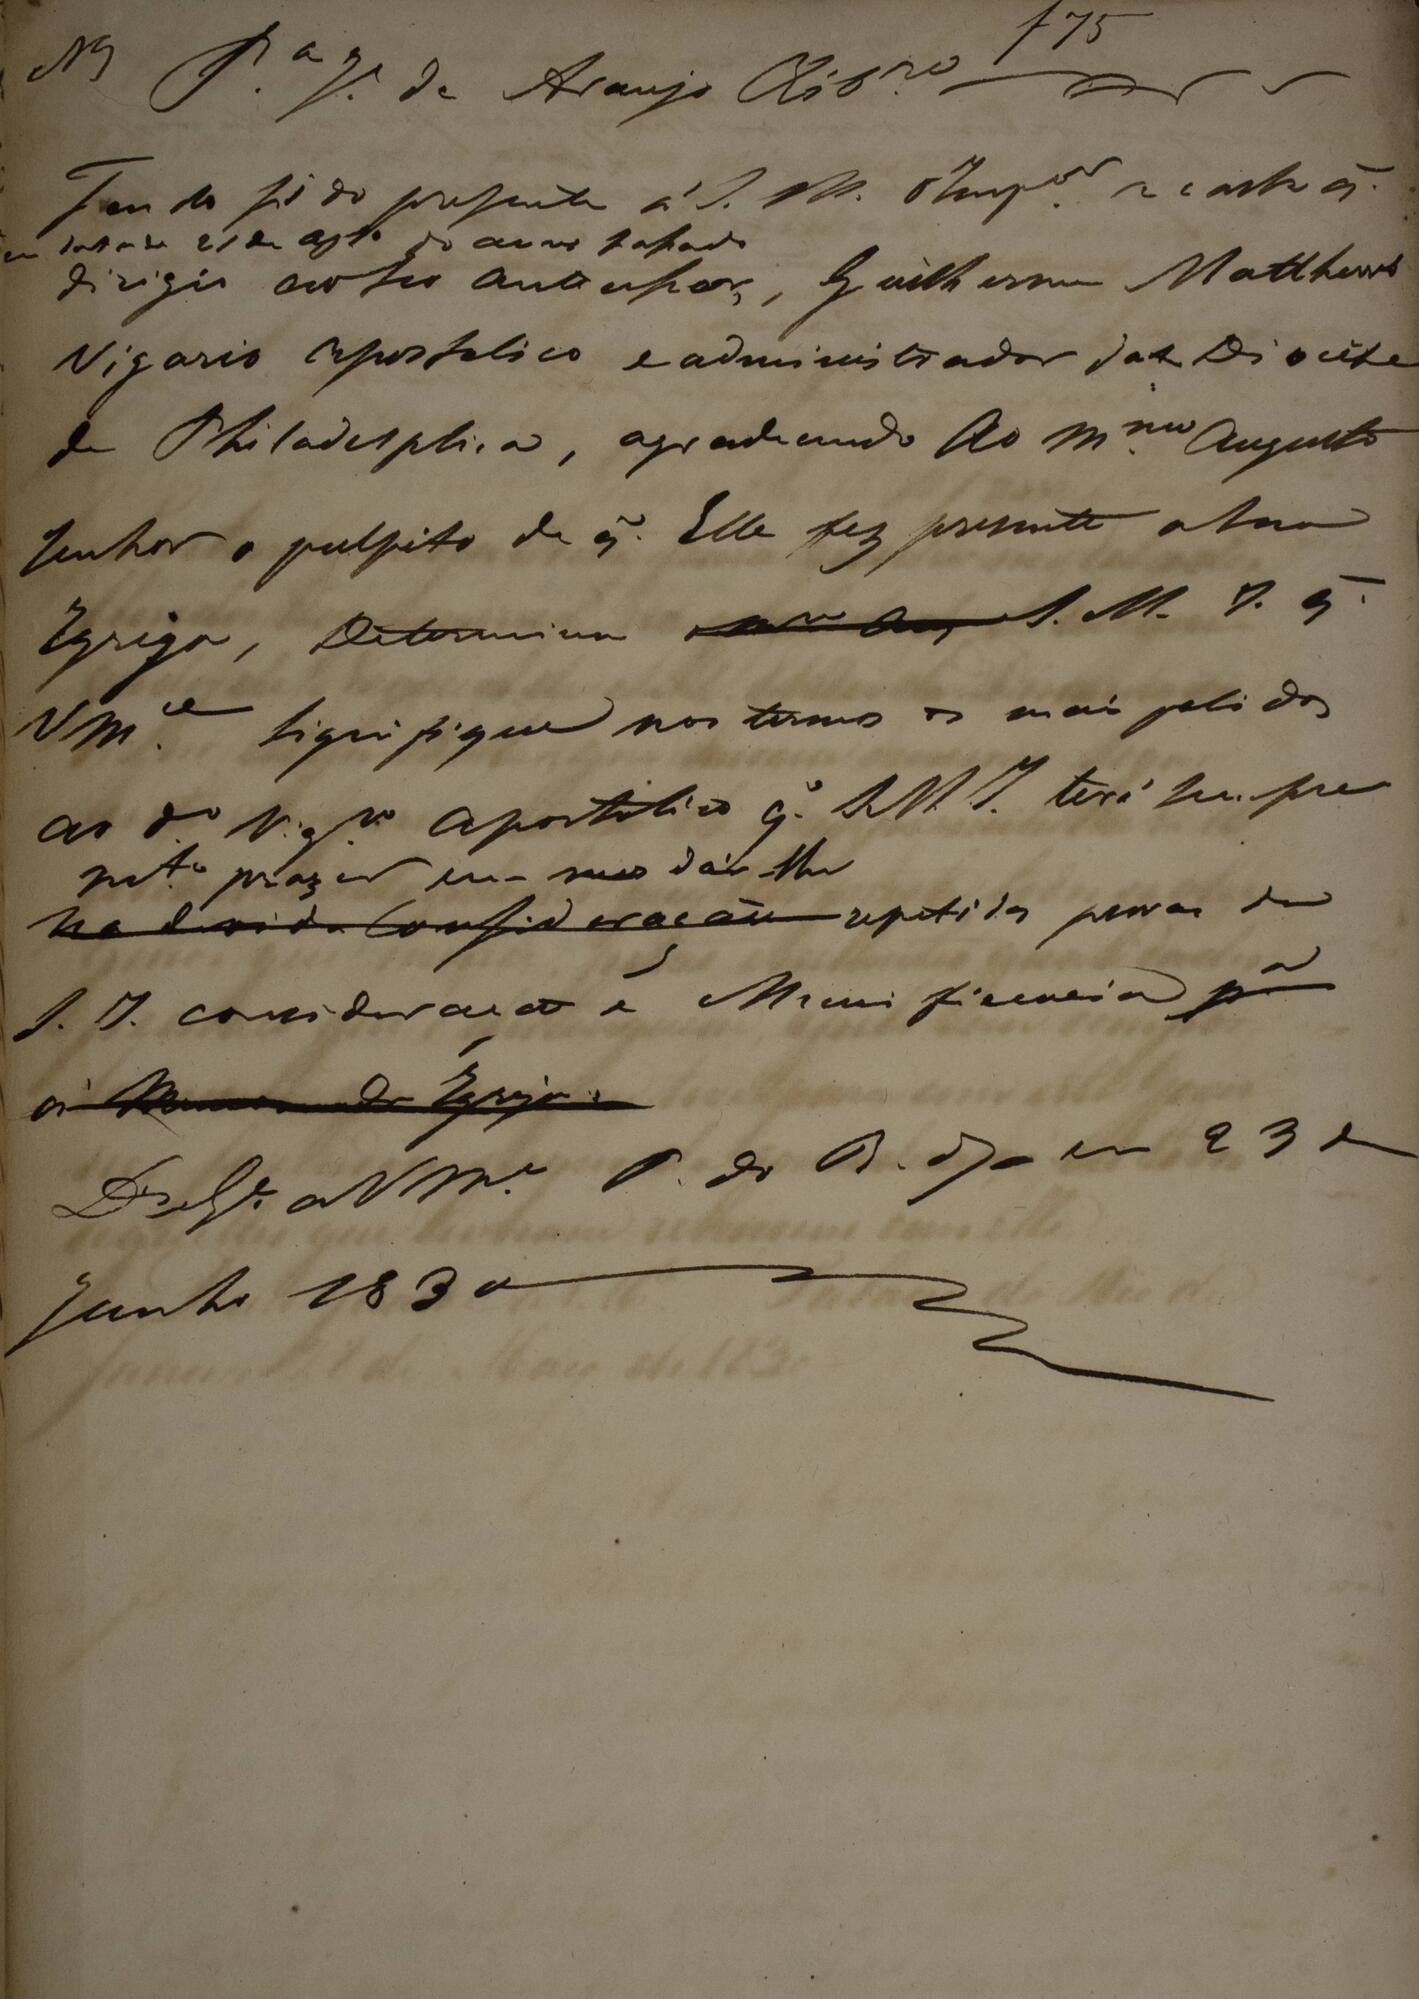 f 75
N9 P.ª J.e de Araujo Rib.ro
Tendo sido presente á S. M. o Imp.or a carta q.
em data de 21 de Ag.to do anno passado
dirigio a seu antecessor, Guilherme Matthews
Vigario Apostolico e administrador da Diocese
de Philadelphia, agradecendo Ao m.mo Augusto
Senhor o pulpito de q. Elle fez presente a sua
Igreja, Determina S. M. I. q.
V M.ce signifique nos termos os mais polidos
ao d.o Vig.ro Apostolico q. S. M. I. terá sempre
mt.o prazer em dár-lhe
na devida Consideração repetidas provas de
S. I. consideração e Munificencia p.a
á da Igreja.
D.s g.e a V M.ce P. do R. de Jan.o em 23 de
Junho 1830